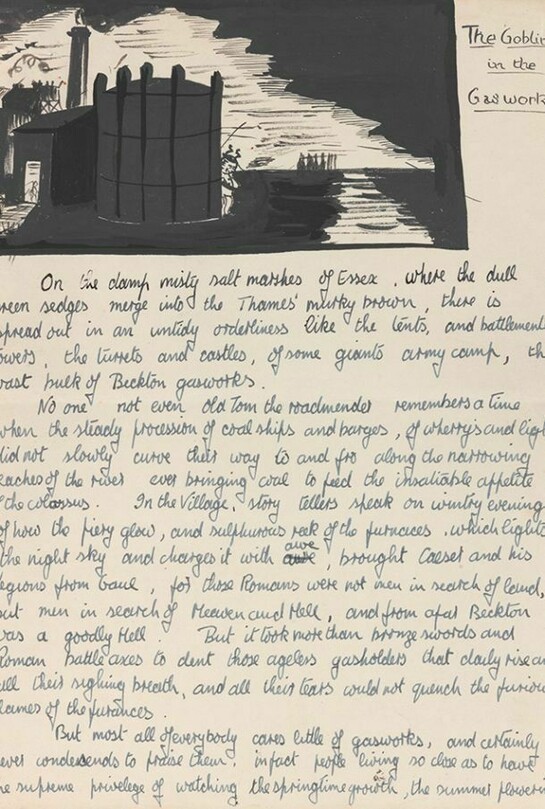 The Goblin
in the
Gaswork
On the damp misty salt marshes of Essex, where the dull
reen sedges merge into the Thames' murky brown, there is
spread out in an untidy orderliness like the tents, and battlement
owers, the turrets and castles, of some giants army camp, th
vast bulk of Beckton gasworks.
No one not even Old Tom the roadmender remembers a time
when the steady procession of coal ships and barges, of wherry's and ligh
did not slowly curve their way to and fro along the narrowing
reaches of the river ever bringing coal to feed the insatiable appetite
of the colossus. In the Village, story tellers speak on wintry evening
of how the fiery glow, and sulphurous reek of the furnaces, which lighte
the night sky and charges it with awe, brought Caesar and his
legions from Gaul, for those Romans were not men in search of land,
but men in search of Heaven and Hell, and from afar Beckton
was a goodly Hell. But it took more than bronze swords and
Roman battle axes to dent those ageless gasholders that daily rise an
all their sighing breath, and all their tears would not quench the furiou
flames of the furances.
But most all of everybody cares little of gasworks, and certainly
ever condesends to praise them. infact people living so close as to have
he supreme privelege of watching the springtime growth, the summer flowerin